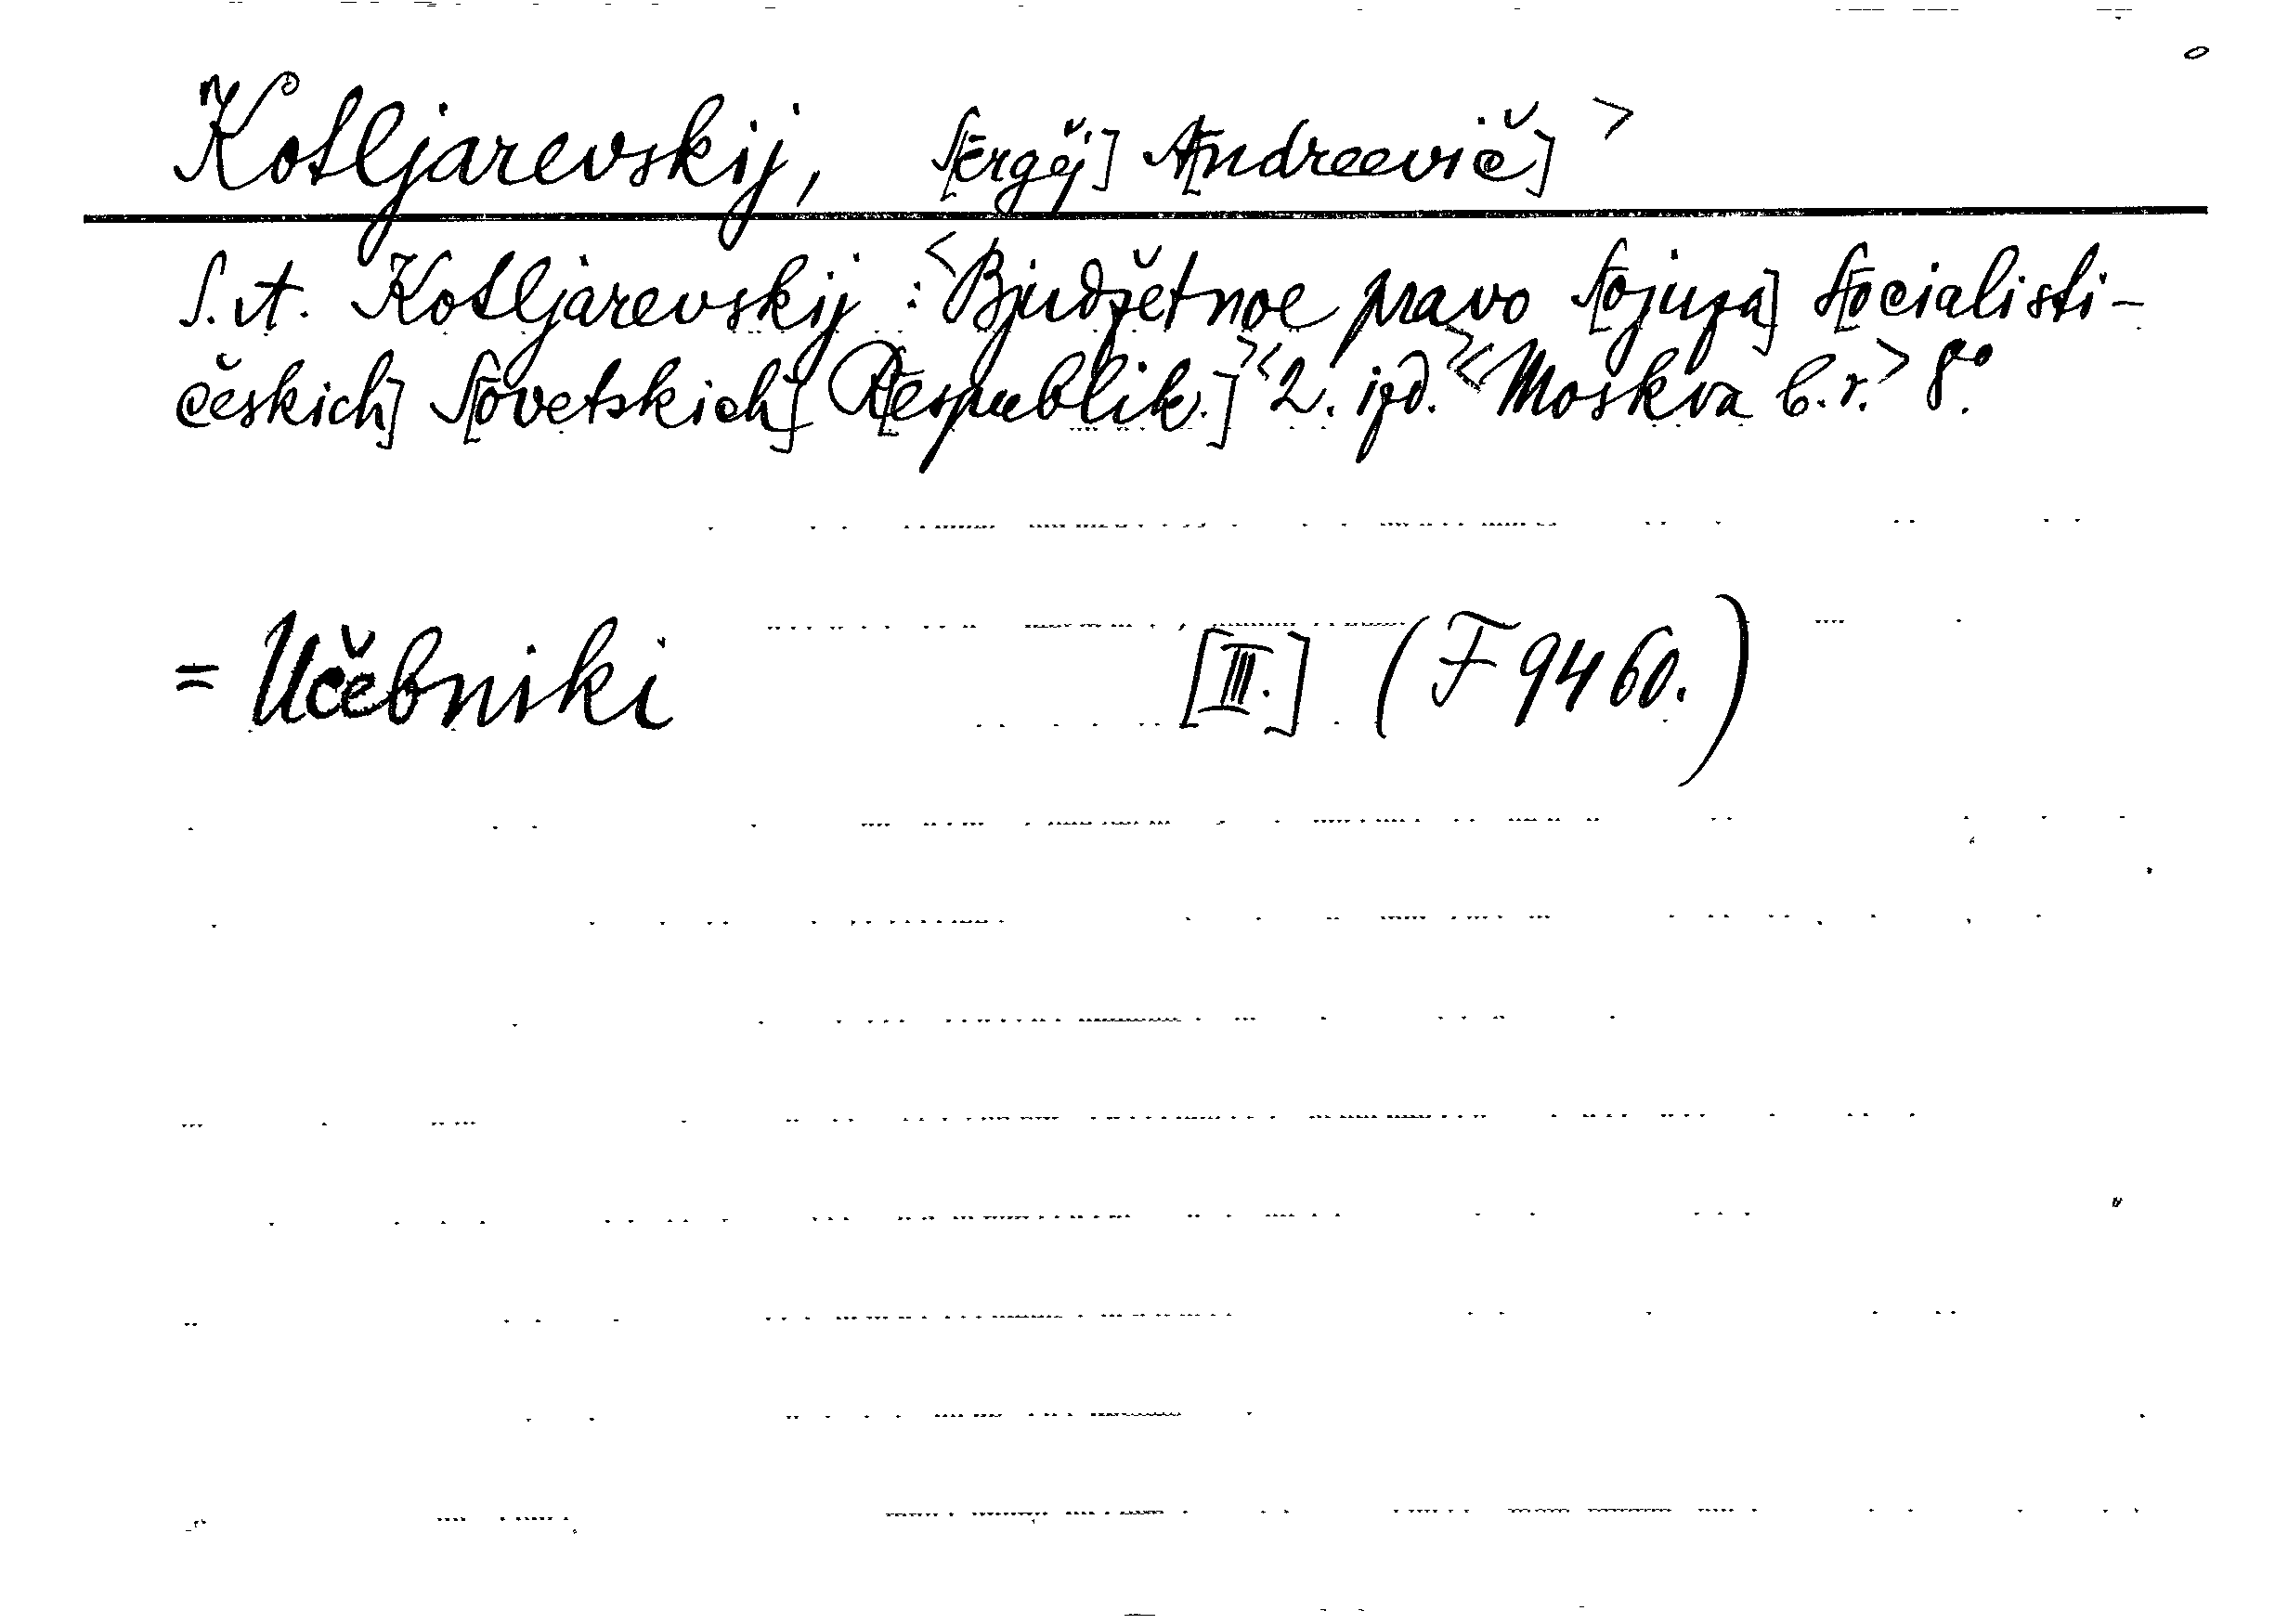 Kotljarevskij, S[ergěj] A[ndreevič]>
S. A. Kotljarevskij: <Bjudžetnoe pravo S[ojuza] S[ocialisti-
českich] S[ovetskich] R[espublik.]> <2. izd.> <Moskva b.r.> 8°.
= Učebniki [III.] (F 9460.)